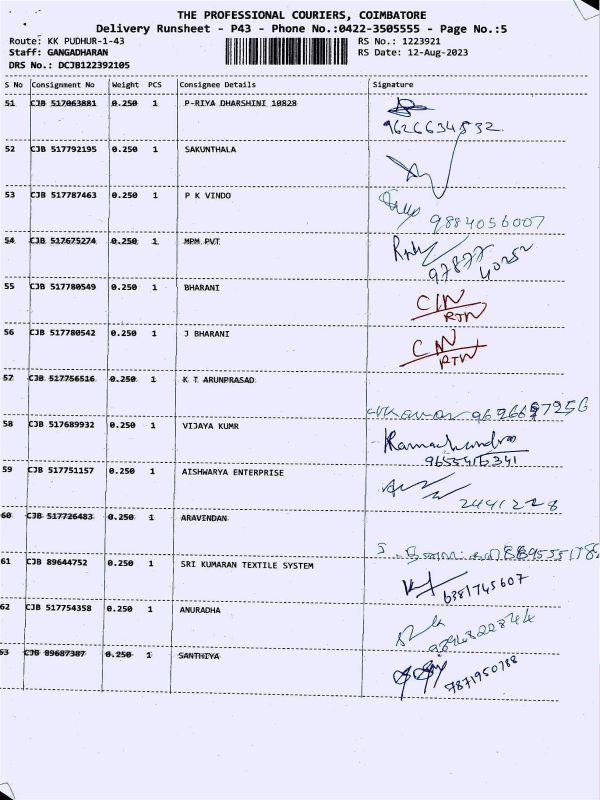 THE PROFESSIONAL COURIERS, COIMBATORE
Delivery Runsheet - P43 - Phone No.:0422-3505555 - Page No.:5
Route: KK PUDHUR-1-43 RS No.: 1223921
Staff: GANGADHARAN RS Date: 12-Aug-2023
DRS No.: DCJB122392105
S No Consignment No Weight PCS Consignee Details Signature
51 CJB 517063881 0.250 1 P-RIYA DHARSHINI 10828
9626634832
52 CJB 517792195 0.250 1 SAKUNTHALA
53 CJB 517787463 0.250 1 P K VINDO
9884056007
54 CJB 517675274 0.250 1 MPM PVT
97877 40252
55 CJB 517780549 0.250 1 BHARANI
C/N
RTN
56 CJB 517780542 0.250 1 J BHARANI
C/N
RTN
57 CJB 517756516 0.250 1 K T ARUNPRASAD
58 CJB 517689932 0.250 1 VIJAYA KUMR
Ramachandra
59 CJB 517751157 0.250 1 AISHWARYA ENTERPRISE
2441228
60 CJB 517726483 0.250 1 ARAVINDAN
61 CJB 89644752 0.250 1 SRI KUMARAN TEXTILE SYSTEM
6381745607
62 CJB 517754358 0.250 1 ANURADHA
63 CJB 89687387 0.250 1 SANTHIYA
7871950788